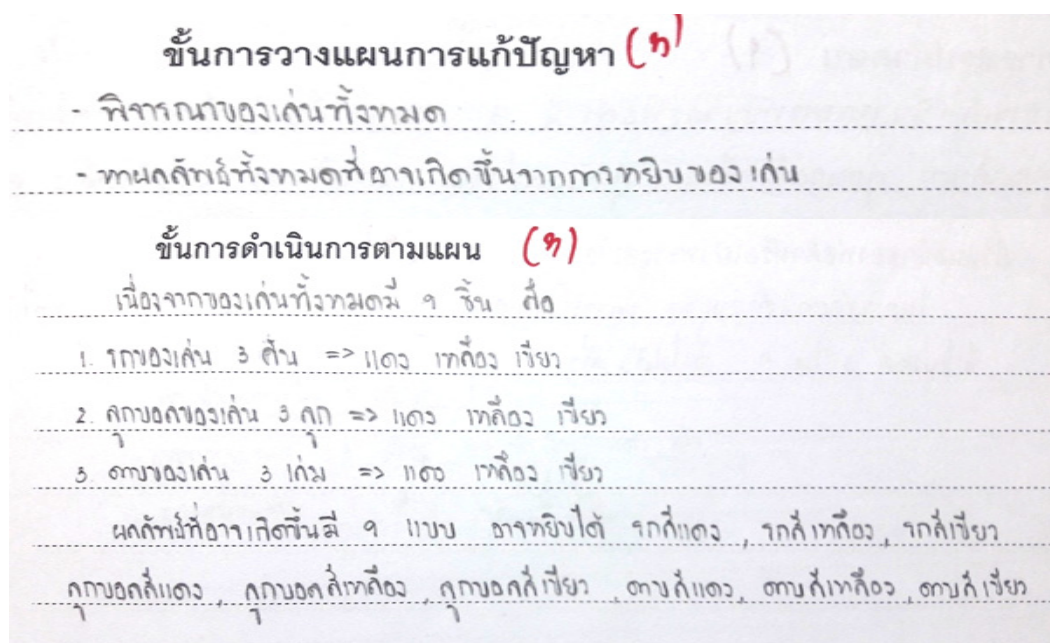 ขั้นการวางแผนการแก้ปัญหา (ๆ)
- พิจารณาของเล่นทั้งหมด
- หาผลลัพธ์ทั้งหมดที่อาจเกิดขึ้นจากการหยิบของเล่น
ขั้นการดำเนินการตามแผน (ๆ)
เนื่องจากของเล่นทั้งหมดมี 9 ชิ้น คือ
1. รถของเล่น 3 คัน => แดง เหลือง เขียว
2. ลูกบอลของเล่น 3 ลูก => แดง เหลือง เขียว
3. ดาบของเล่น 3 เล่ม => แดง เหลือง เขียว
ผลลัพธ์ที่อาจเกิดขึ้นมี 9 แบบ อาจหยิบได้ รถสีแดง, รถสีเหลือง, รถสีเขียว
ลูกบอลสีแดง, ลูกบอลสีเหลือง, ลูกบอลสีเขียว, ดาบสีแดง, ดาบสีเหลือง, ดาบสีเขียว